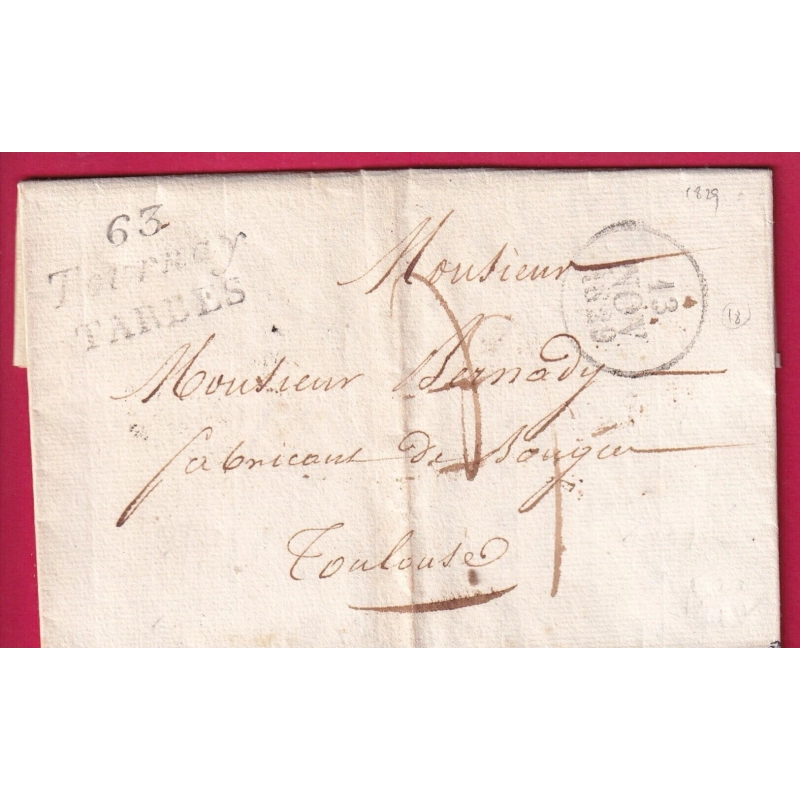 1829
63
Tournay
TARBES
13
NOV
1829
18
Monsieur
Monsieur Bernady
fabricant de Bougie
Toulouse